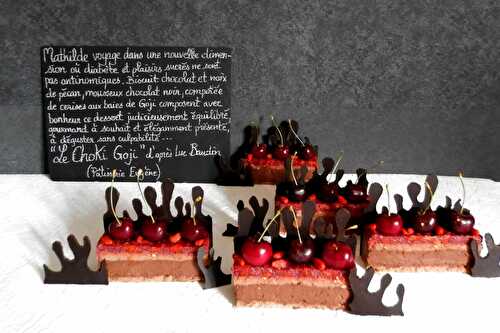 Mathilde voyage dans une nouvelle dimen-
sion où diabète et plaisirs sucrés ne sont
pas antinomiques. Biscuit chocolat et noix
de pécan, mousseux chocolat noir, compotée
de cerises aux baies de Goji composent avec
bonheur ce dessert judicieusement équilibré,
gourmand à souhait et élégamment présenté,
à déguster sans culpabilité ...
"Le Choki Goji" d'après Luc Baudin
(Pâtisserie Eugène)